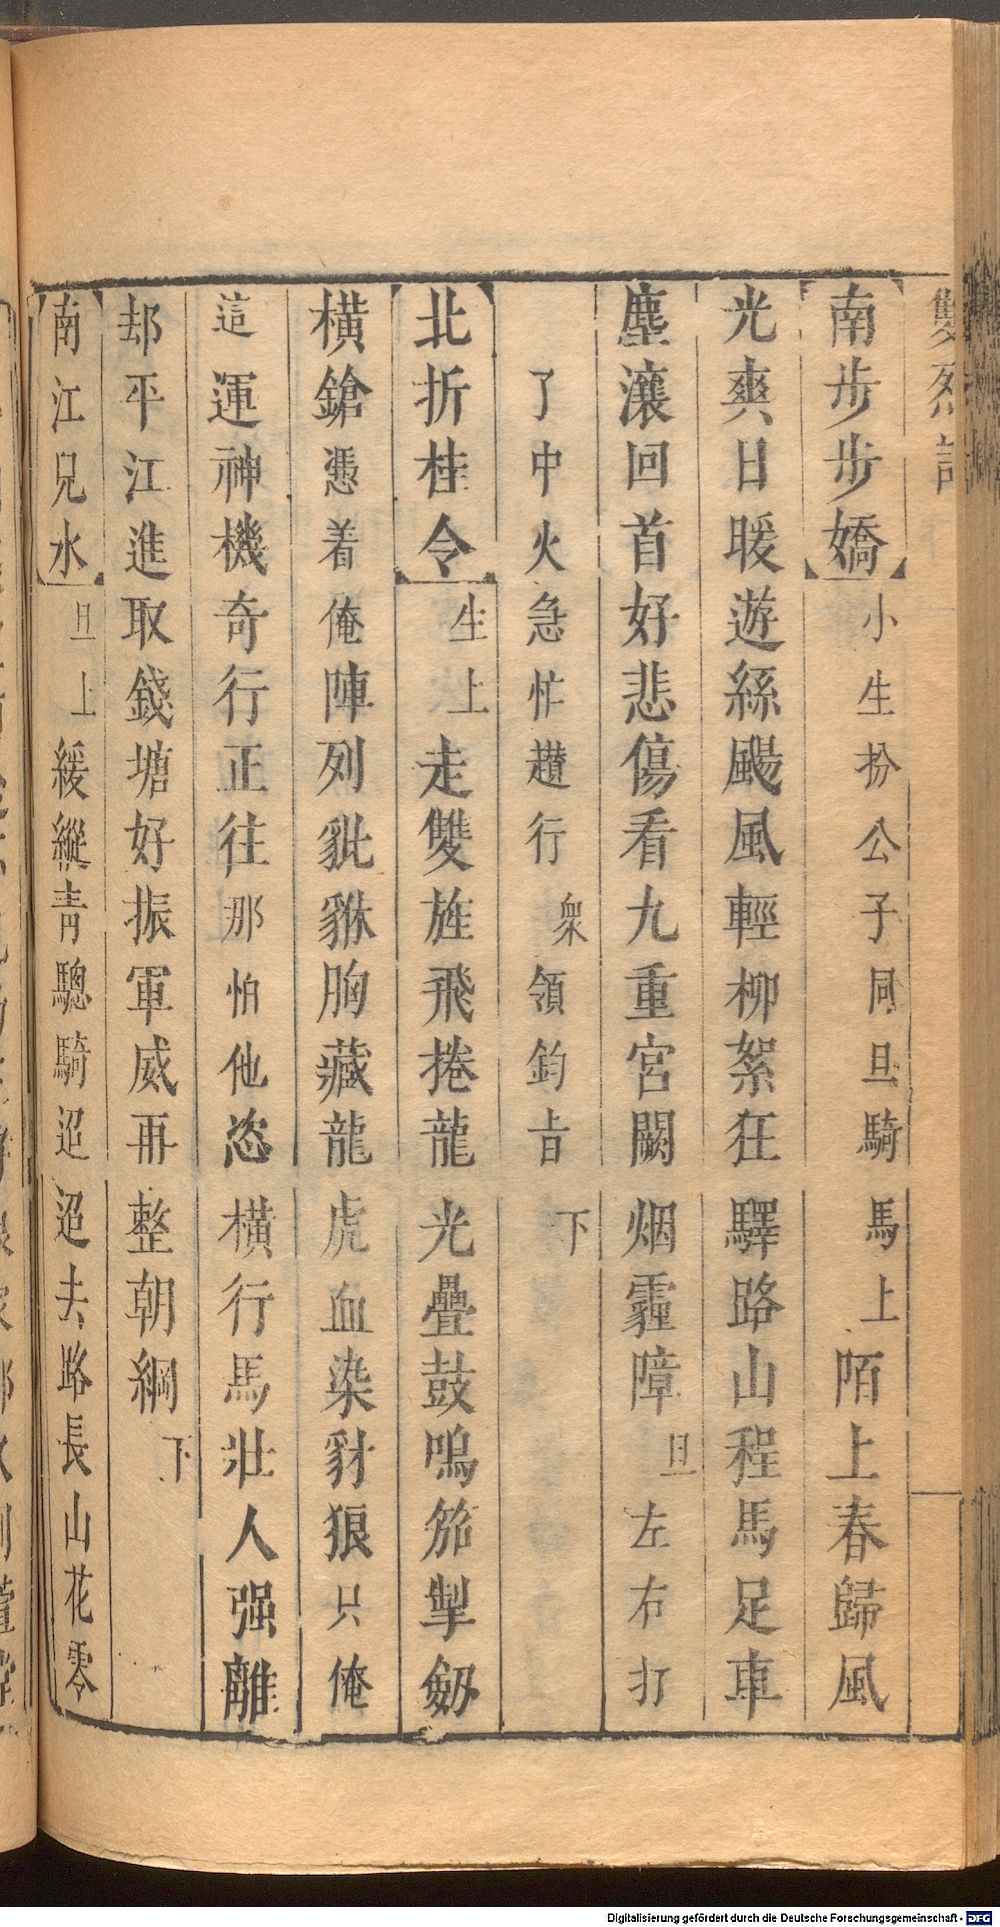 雙烈記
南步步嬌小生扮公子同旦騎馬上陌上春歸風
光爽日暖遊絲颺風輕柳絮狂驛路山程馬足車
塵瀼回首好悲傷看九重宮闕烟霾障旦左右打
了中火急忙趲行衆領鈞旨下
北折桂令生上走雙旌飛捲龍光疊鼓鳴笳掣劔
橫鎗憑着俺陣列豼貅胸藏龍虎血染豺狼只俺
這運神機奇行正往那怕他恣橫行馬壯人强離
却平江進取錢塘好振軍威再整朝綱下
南江兒水旦上緩縱青驄騎迢迢去路長山花零
Digitalisierung gefördert durch die Deutsche Forschungsgemeinschaft - DFG